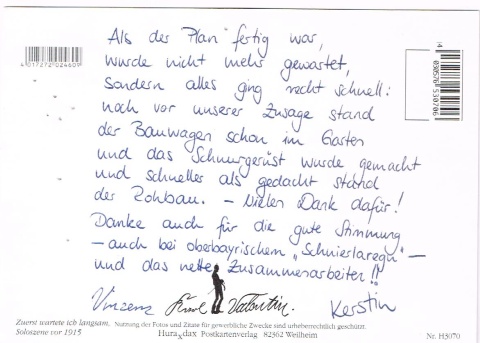 Als der Plan fertig war,
wurde nicht mehr gewartet,
sondern alles ging recht schnell:
noch vor unserer Zusage stand
der Bauwagen schon im Garten
und das Schnurgerüst wurde gemacht
und schneller als gedacht stand
der Rohbau. – Vielen Dank dafür!
Danke auch für die gute Stimmung
– auch bei oberbayrischem „Schnierlaregn“ –
und das nette Zusammenarbeiten!!
Vinzenz Karl Valentin. Kerstin
4 017272 024609
4 030576 530706
Zuerst wartete ich langsam. Nutzung der Fotos und Zitate für gewerbliche Zwecke sind urheberrechtlich geschützt.
Soloszene vor 1915 Huraxdax Postkartenverlag 82362 Weilheim Nr. H3070